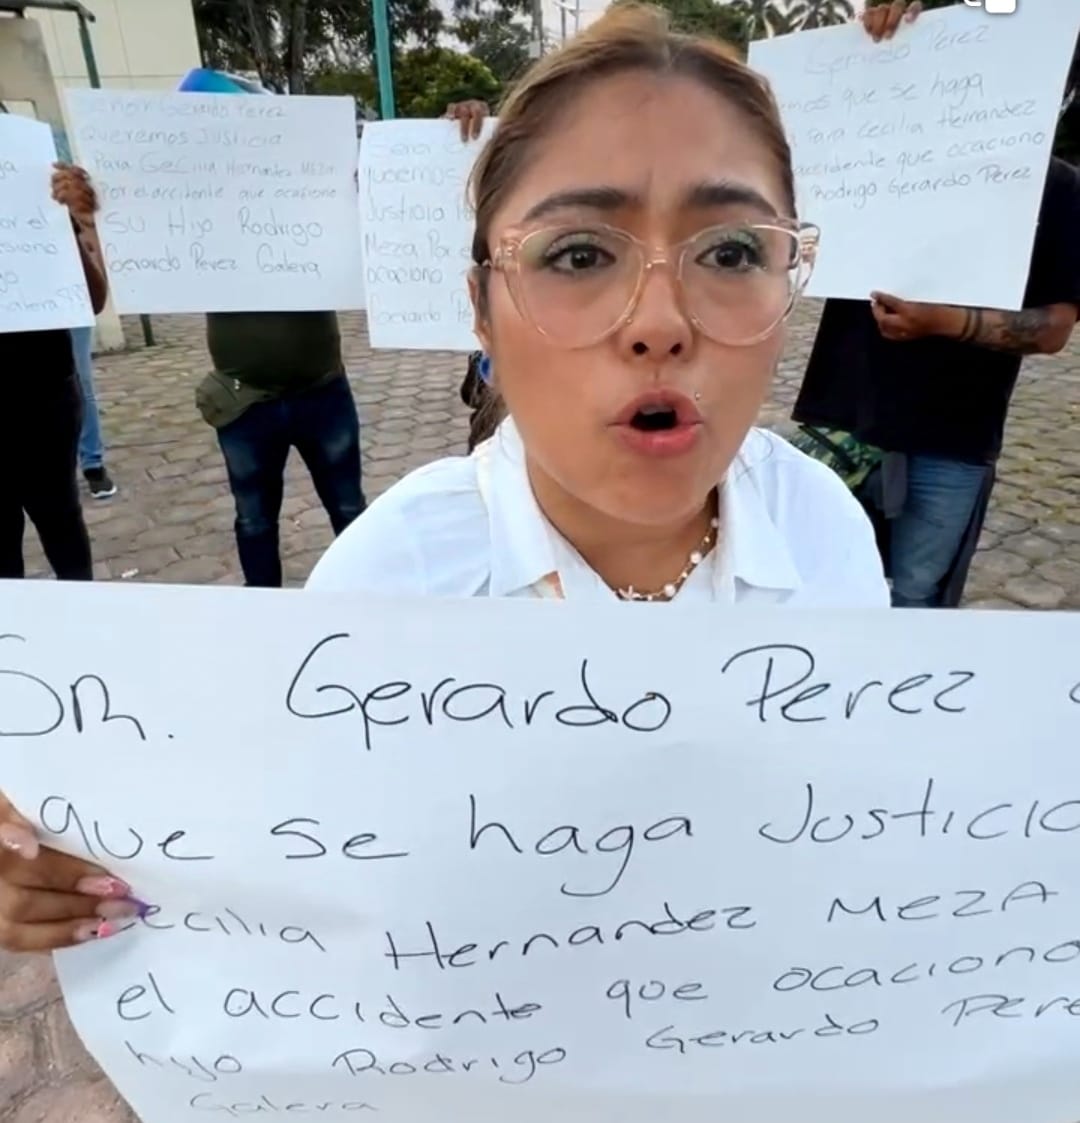 Señor Gerardo Perez
Queremos Justicia
Para Cecilia Hernandes Meza
Por el accidente que ocasione
Su Hijo Rodrigo
Gerardo Perez Galera
Queremos
Justicia
Meza Por
ocaciono
Gerardo Pe
Gerardo Perez
mos que se haga
Para Cecilia Hernandez
accidente que ocaciono
Rodrigo Gerardo Perez
or el
siono
go
Galera
SR. Gerardo Perez
que se haga Justicia
Cecilia Hernandez MEZA
el accidente que ocaciono
hijo Rodrigo Gerardo Pere
Galera